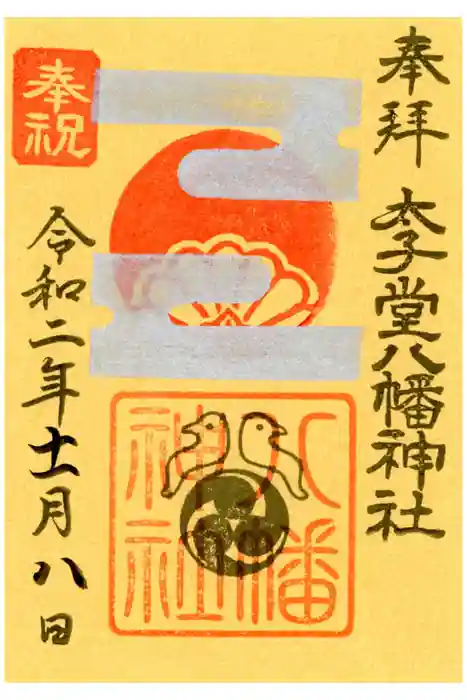 奉拝
太子堂八幡神社
奉祝
八幡
神社
令和二年十一月八日